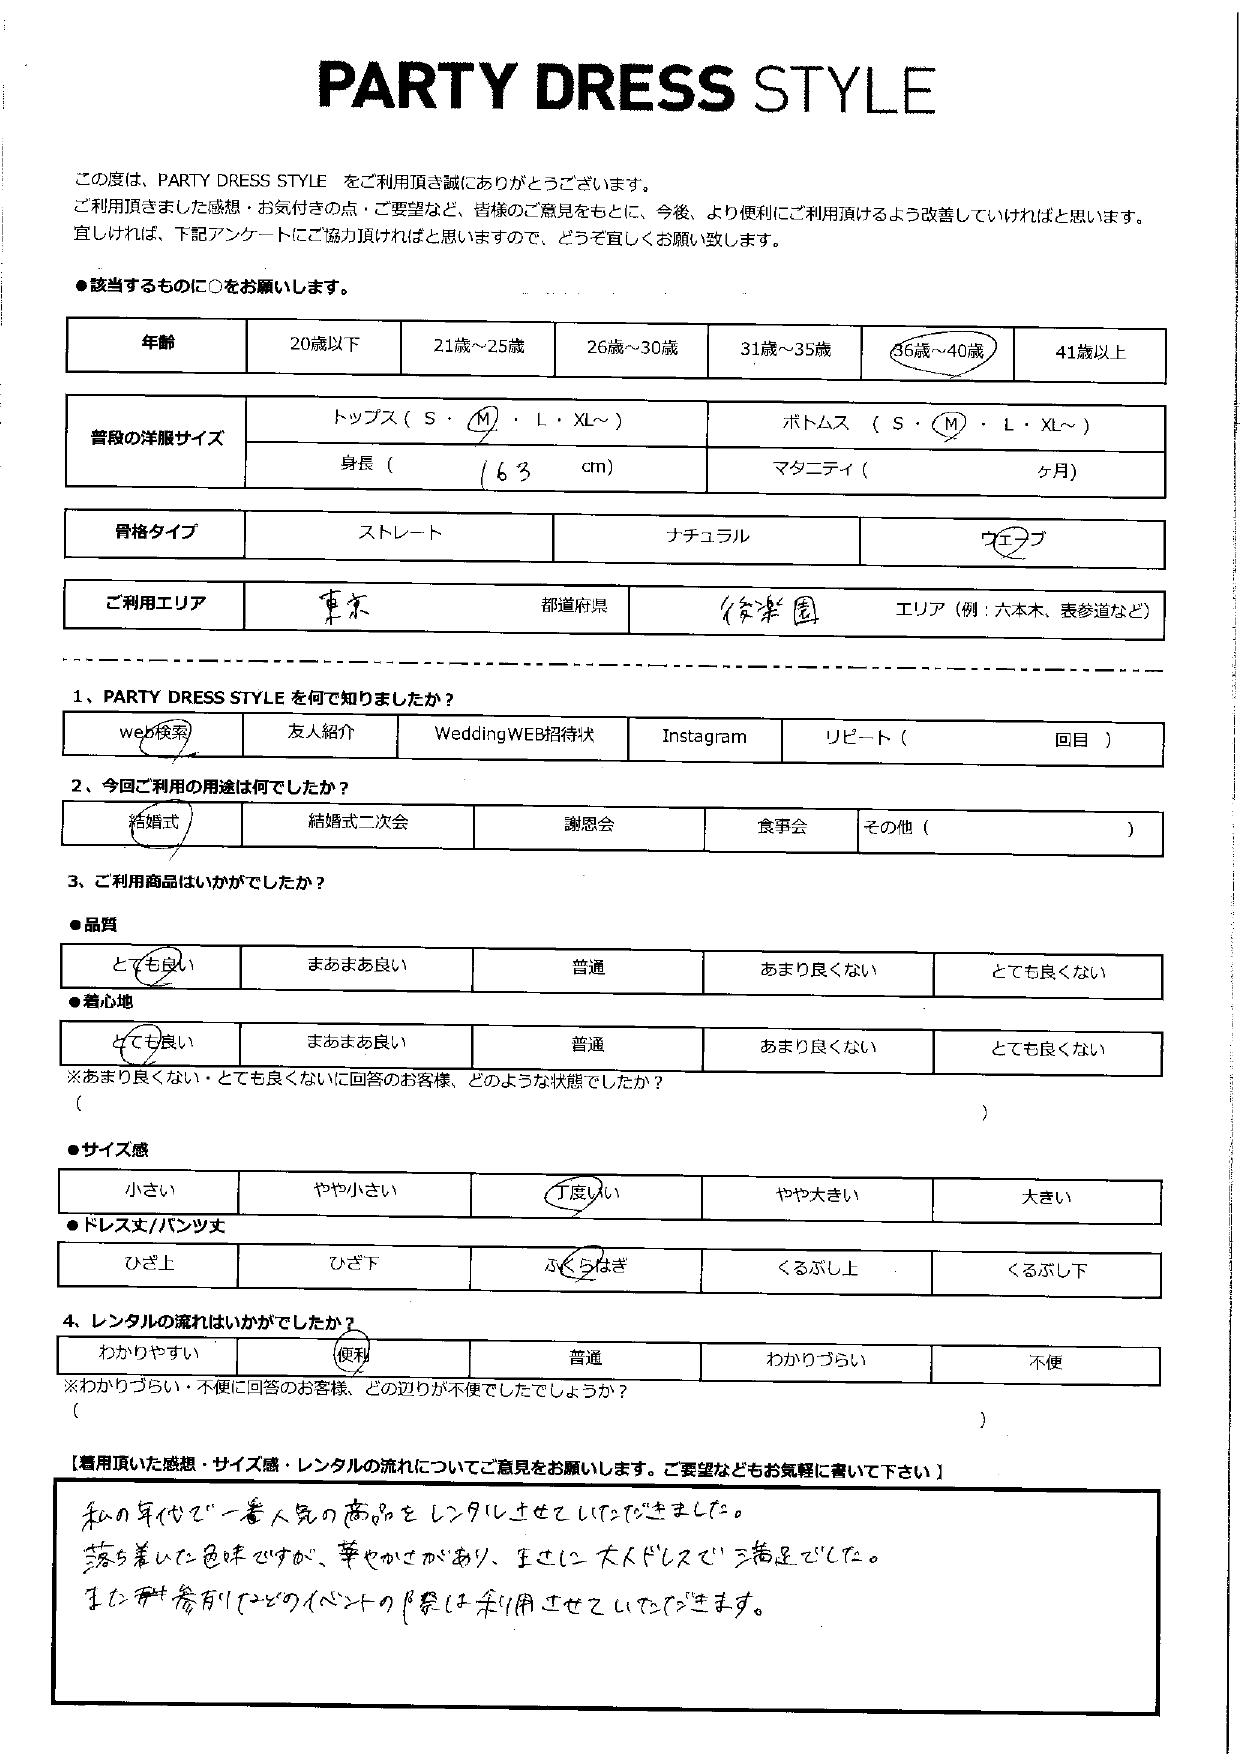 PARTY DRESS STYLE
この度は、PARTY DRESS STYLE をご利用頂き誠にありがとうございます。
ご利用頂きました感想・お気付きの点・ご要望など、皆様のご意見をもとに、今後、より便利にご利用頂けるよう改善していければと思います。
宜しければ、下記アンケートにご協力頂ければと思いますので、どうぞ宜しくお願い致します。
●該当するものに○をお願いします。
年齢 20歳以下 21歳～25歳 26歳～30歳 31歳～35歳 36歳～40歳 41歳以上
普段の洋服サイズ トップス ( S ・ M ・ L ・ XL～ ) ボトムス ( S ・ M ・ L ・ XL～ )
身長 ( 163 cm) マタニティ ( ヶ月)
骨格タイプ ストレート ナチュラル ウェーブ
ご利用エリア 東京 都道府県 後楽園 エリア（例：六本木、表参道など）
1、PARTY DRESS STYLE を何で知りましたか？
web検索 友人紹介 WeddingWEB招待状 Instagram リピート ( 回目 )
2、今回ご利用の用途は何でしたか？
結婚式 結婚式二次会 謝恩会 食事会 その他 ( )
3、ご利用商品はいかがでしたか？
●品質
とても良い まあまあ良い 普通 あまり良くない とても良くない
●着心地
とても良い まあまあ良い 普通 あまり良くない とても良くない
※あまり良くない・とても良くないに回答のお客様、どのような状態でしたか？
( )
●サイズ感
小さい やや小さい 丁度いい やや大きい 大きい
●ドレス丈/パンツ丈
ひざ上 ひざ下 ふくらはぎ くるぶし上 くるぶし下
4、レンタルの流れはいかがでしたか？
わかりやすい 便利 普通 わかりづらい 不便
※わかりづらい・不便に回答のお客様、どの辺りが不便でしたでしょうか？
( )
【着用頂いた感想・サイズ感・レンタルの流れについてご意見をお願いします。ご要望などもお気軽に書いて下さい】
私の年代で一番人気の商品をレンタルさせていただきました。
落ち着いた色味ですが、華やかさがあり、まさに大人ドレスで満足でした。
また参列などのイベントの際は利用させていただきます。